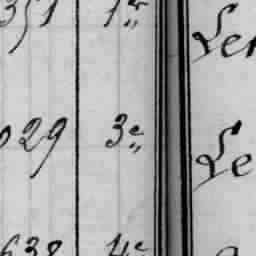 351 1er Ler
029 3e Le
638 4e